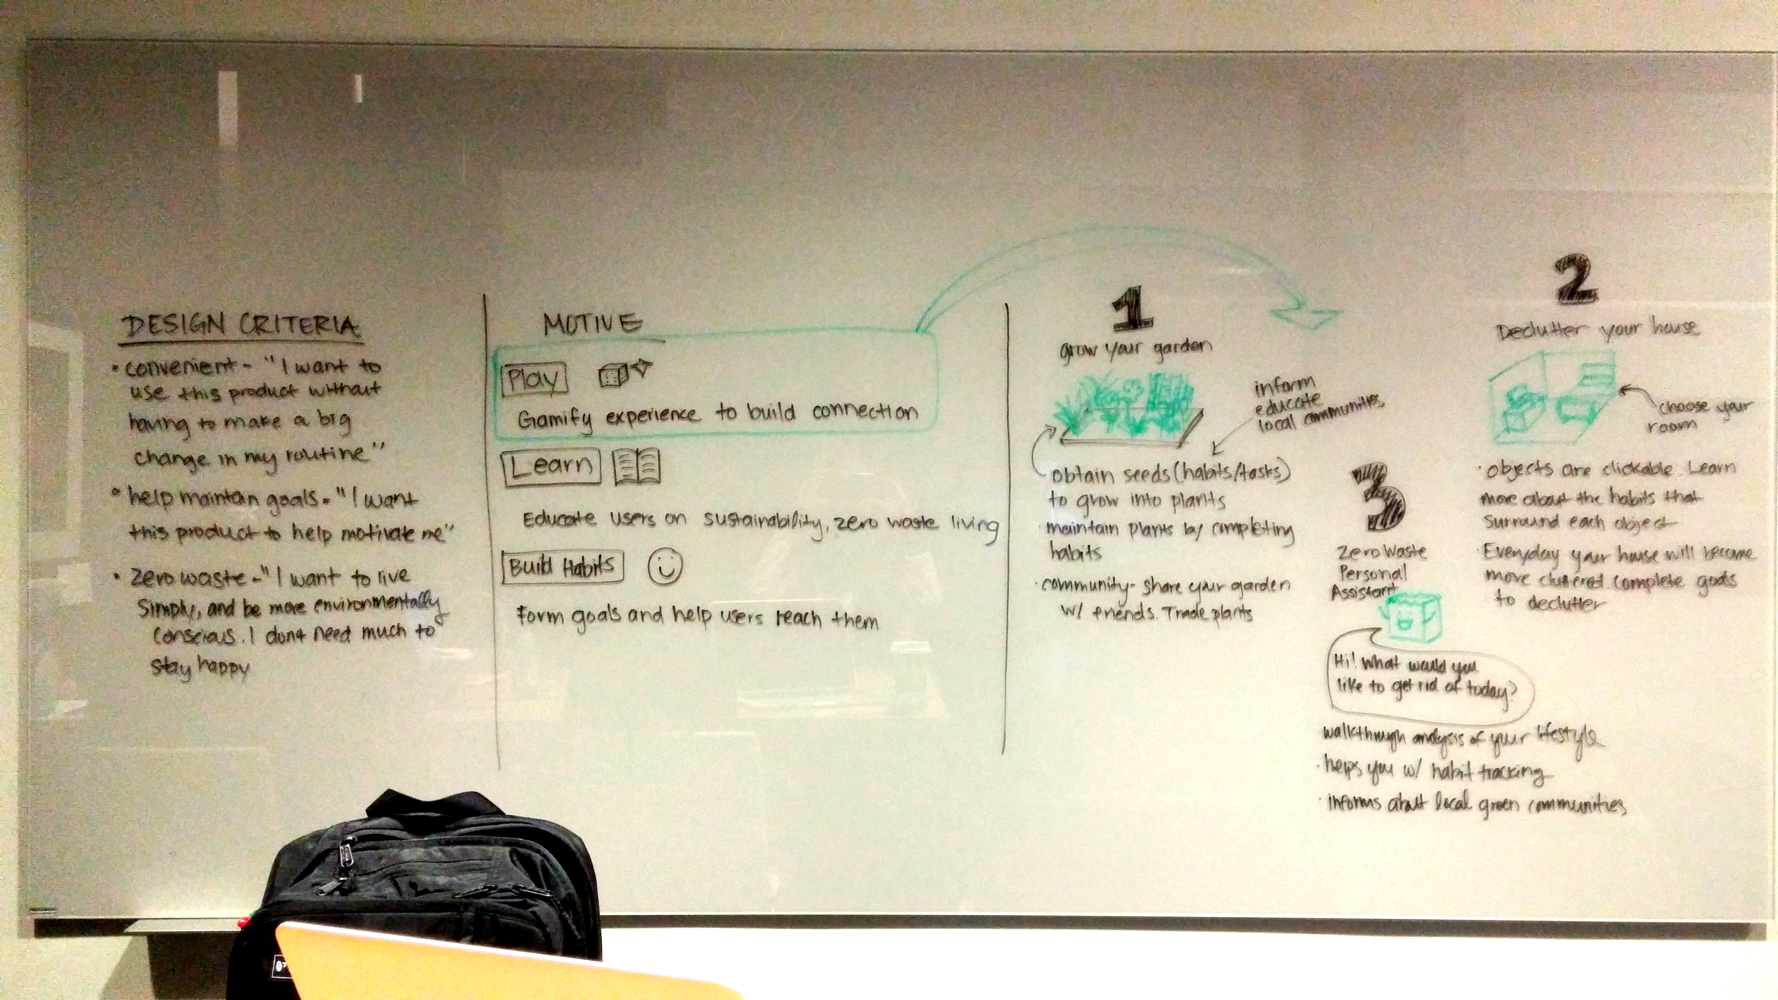 DESIGN CRITERIA
• convenient - "I want to
use this product without
having to make a big
change in my routine"
• help maintan goals - "I want
this product to help motivate me"
• zero waste - "I want to live
simply, and be more environmentally
conscious. I dont need much to
stay happy
MOTIVE
Play
Gamify experience to build connection
Learn
Educate users on sustainability, zero waste living
Build Habits
Form goals and help users reach them
1
grow your garden
inform
educate
local communities
obtain seeds (habits/tasks)
to grow into plants
· maintain plants by completing
habits
· community - share your garden
w/ friends. Trade plants
2
Declutter your house
choose your
room
· objects are clickable. Learn
more about the habits that
surround each object
· Everyday your house will become
more cluttered complete goals
to declutter
3
Zero Waste
Personal
Assistant
Hi! What would you
like to get rid of today?
walkthrough analysis of your lifestyle
· helps you w/ habit tracking
· informs about local green communities